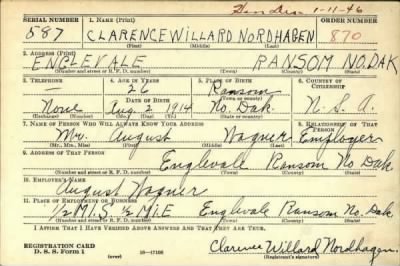 1-11-46
SERIAL NUMBER 1. NAME (Print) ORDER NUMBER
587 CLARENCE WILLARD NORDHAGEN 870
(First) (Middle) (Last)
2. ADDRESS (Print)
ENGLEVALE RANSOM NO.DAK
(Number and street or R. F. D. number) (Town) (County) (State)
3. TELEPHONE 4. AGE IN YEARS 5. PLACE OF BIRTH 6. COUNTRY OF CITIZENSHIP
— 26 Ransom
DATE OF BIRTH (Town or county)
None Aug 2 1914 No. Dak. U. S. A.
(Mo.) (Day) (Yr.) (State or country)
7. NAME OF PERSON WHO WILL ALWAYS KNOW YOUR ADDRESS 8. RELATIONSHIP OF THAT PERSON
Mr. August Wagner Employer
(Mr., Mrs., Miss) (First) (Middle) (Last)
9. ADDRESS OF THAT PERSON
Englevale Ransom No Dak
(Number and street or R. F. D. number) (Town) (County) (State)
10. EMPLOYER'S NAME
August Wagner
11. PLACE OF EMPLOYMENT OR BUSINESS
1/2 Mi S. 1/2 Mi E Englevale Ransom No. Dak
(Number and street or R. F. D. number) (Town) (County) (State)
I AFFIRM THAT I HAVE VERIFIED ABOVE ANSWERS AND THAT THEY ARE TRUE.
REGISTRATION CARD
D. S. S. Form 1 (over) Clarence Willard Nordhagen
(Registrant's signature)